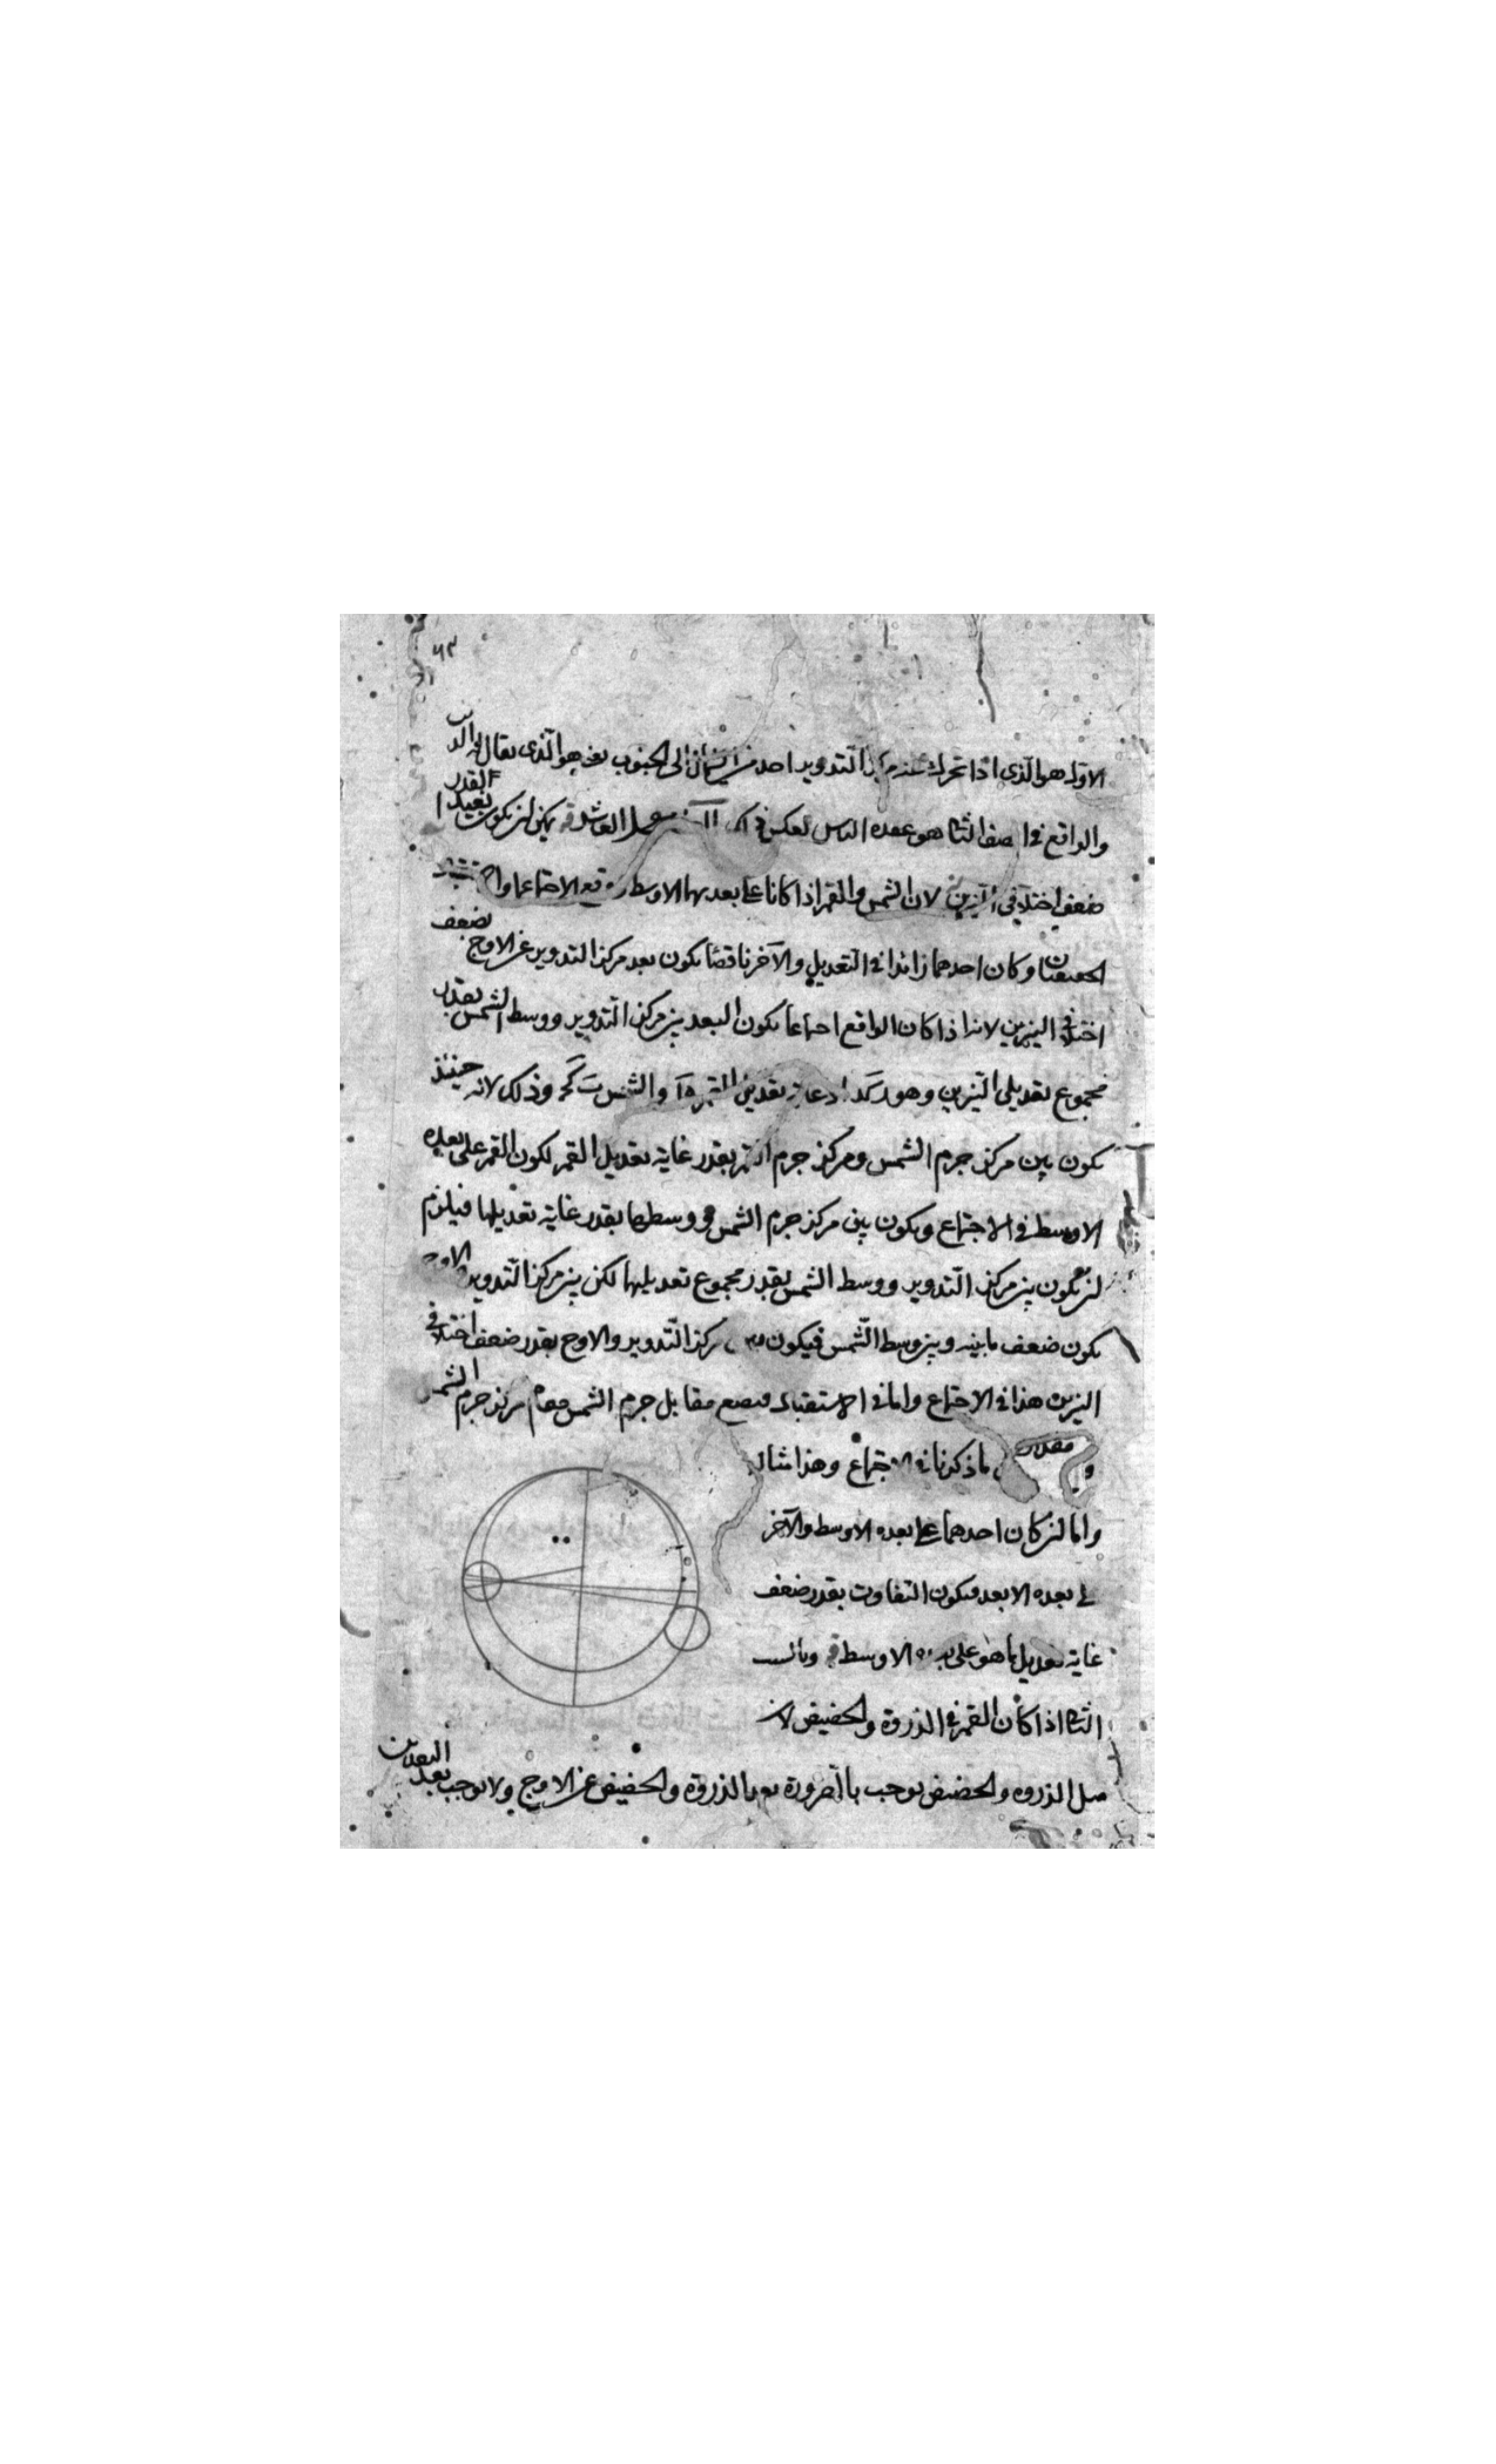 ٦٣
الاول هو الذى اذا تحرك عنه مركز التدوير احد من الشمال الى الجنوب هو الذى يقال له الراس
والواقع فى النصف الثانى هو عقده الذنب يمكن ان يكون بعيدا بقدر
ضعف اختلافى النيرين لان الشمس والقمر اذا كانا على بعديهما الاوسط وقع الاجتماع او
الحقيقيان وكان احدهما زائدا فى التعديل والآخر ناقصا يكون بعد مركز التدوير عن الاوج بضعف
اختلافى النيرين لانه اذا كان الواقع اجتماعا يكون البعد بين مركز التدوير ووسط الشمس بقدر
مجموع تعديلى النيرين وهو القمر والشمس وذلك لانه حينئذ
يكون بين مركز جرم الشمس ومركز جرم القمر بقدر غاية تعديل القمر لكون القمر على بعده
الاوسط فى الاجتماع ويكون بين مركز جرم الشمس ووسطها بقدر غاية تعديلها فيلزم
ان يكون بين مركز التدوير ووسط الشمس بقدر مجموع تعديليهما لكن بين مركز التدوير والاوج
يكون ضعف ما بينه وبين وسط الشمس فيكون مركز التدوير والاوج بقدر ضعف اختلافى
النيرين هذا فى الاجتماع واما فى الاستقبال فيضع مقابل جرم الشمس مقام مركز جرم الشمس
ما ذكرنا فى الاجتماع وهذا مثاله
واما ان كان احدهما على بعده الاوسط والآخر
فى بعده الابعد فيكون التفاوت بقدر ضعف
غاية تعديل ما هو على بعده الاوسط
الثانى اذا كان القمر فى الذروة والحضيض لان
ميل الذروه والحضيض يوجب بالضرورة بعد الذروة والحضيض عن الاوج ولا يوجب بعد البعدين